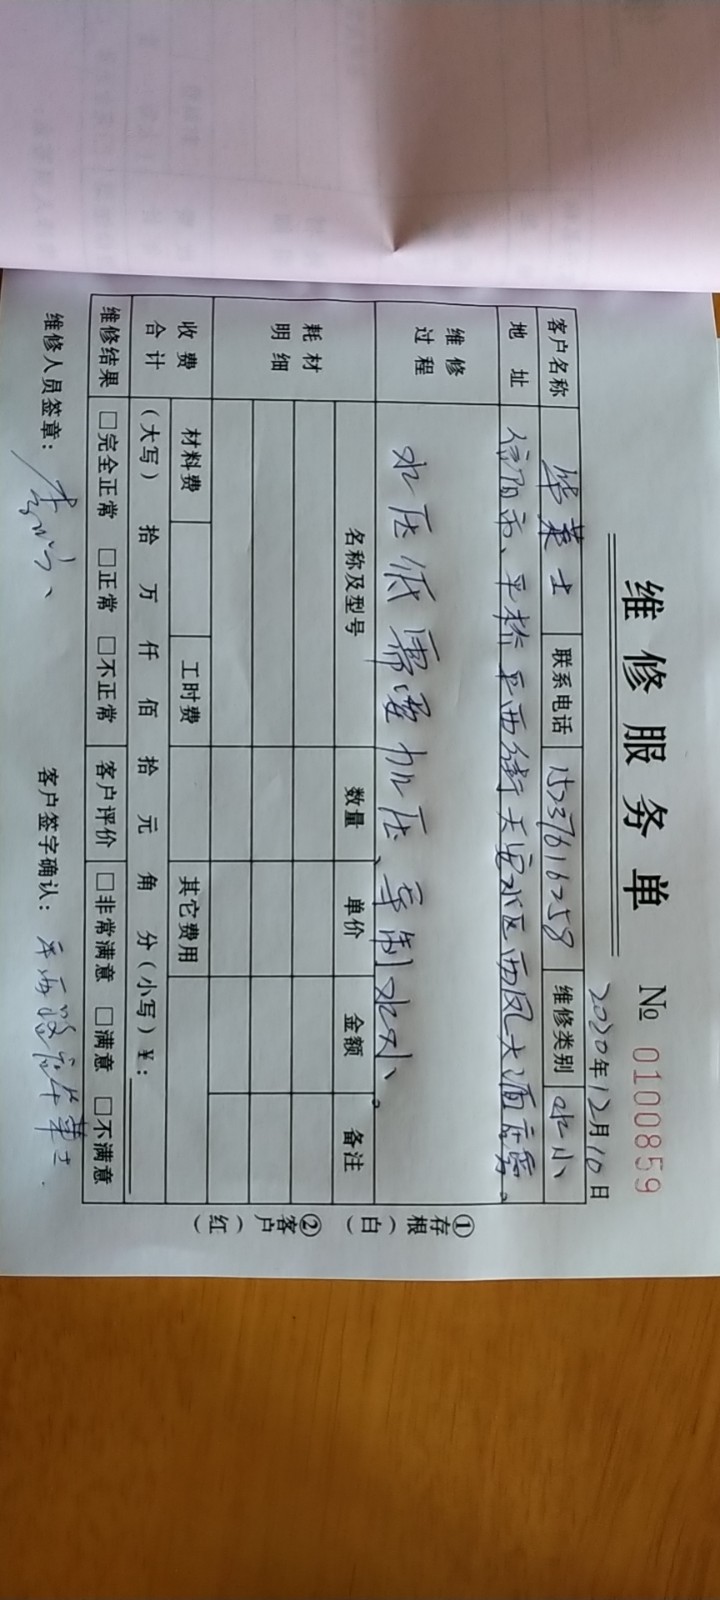 维修服务单
№ 0100859
2020年12月10日
客户名称 毕英士 联系电话 15237616258 维修类别 水小
地址 信阳市、平桥 平西街天安小区西凤大酒店旁。
维修过程 水压低需要加压、牵制水小、。
耗材明细 名称及型号 数量 单价 金额 备注
收费合计 材料费 工时费 其它费用
(大写) 拾 万 仟 佰 拾 元 角 分(小写)¥:
维修结果 □完全正常 □正常 □不正常 客户评价 □非常满意 □满意 □不满意
维修人员签章: 客户签字确认:
①存根(白) ②客户(红)